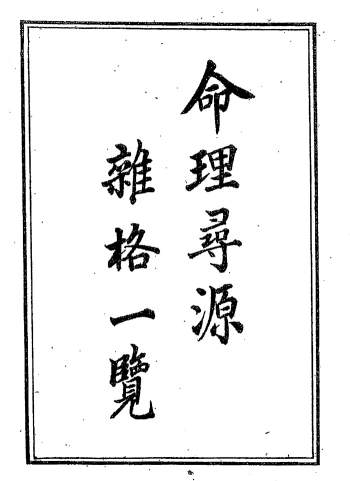 命理尋源
雜格一覽